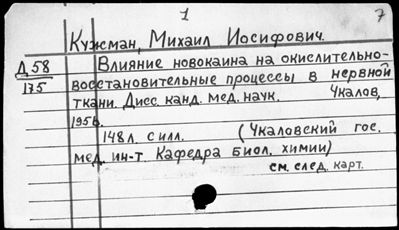 1 7
Кужман, Михаил Иосифович.
Д58 Влияние новокаина на окислительно-
175 восстановительные процессы в нервной
ткани. Дисс. канд. мед. наук. Чкалов,
1956.
148л. с илл. (Чкаловский гос.
мед. ин-т. Кафедра биол. химии)
см. след. карт.